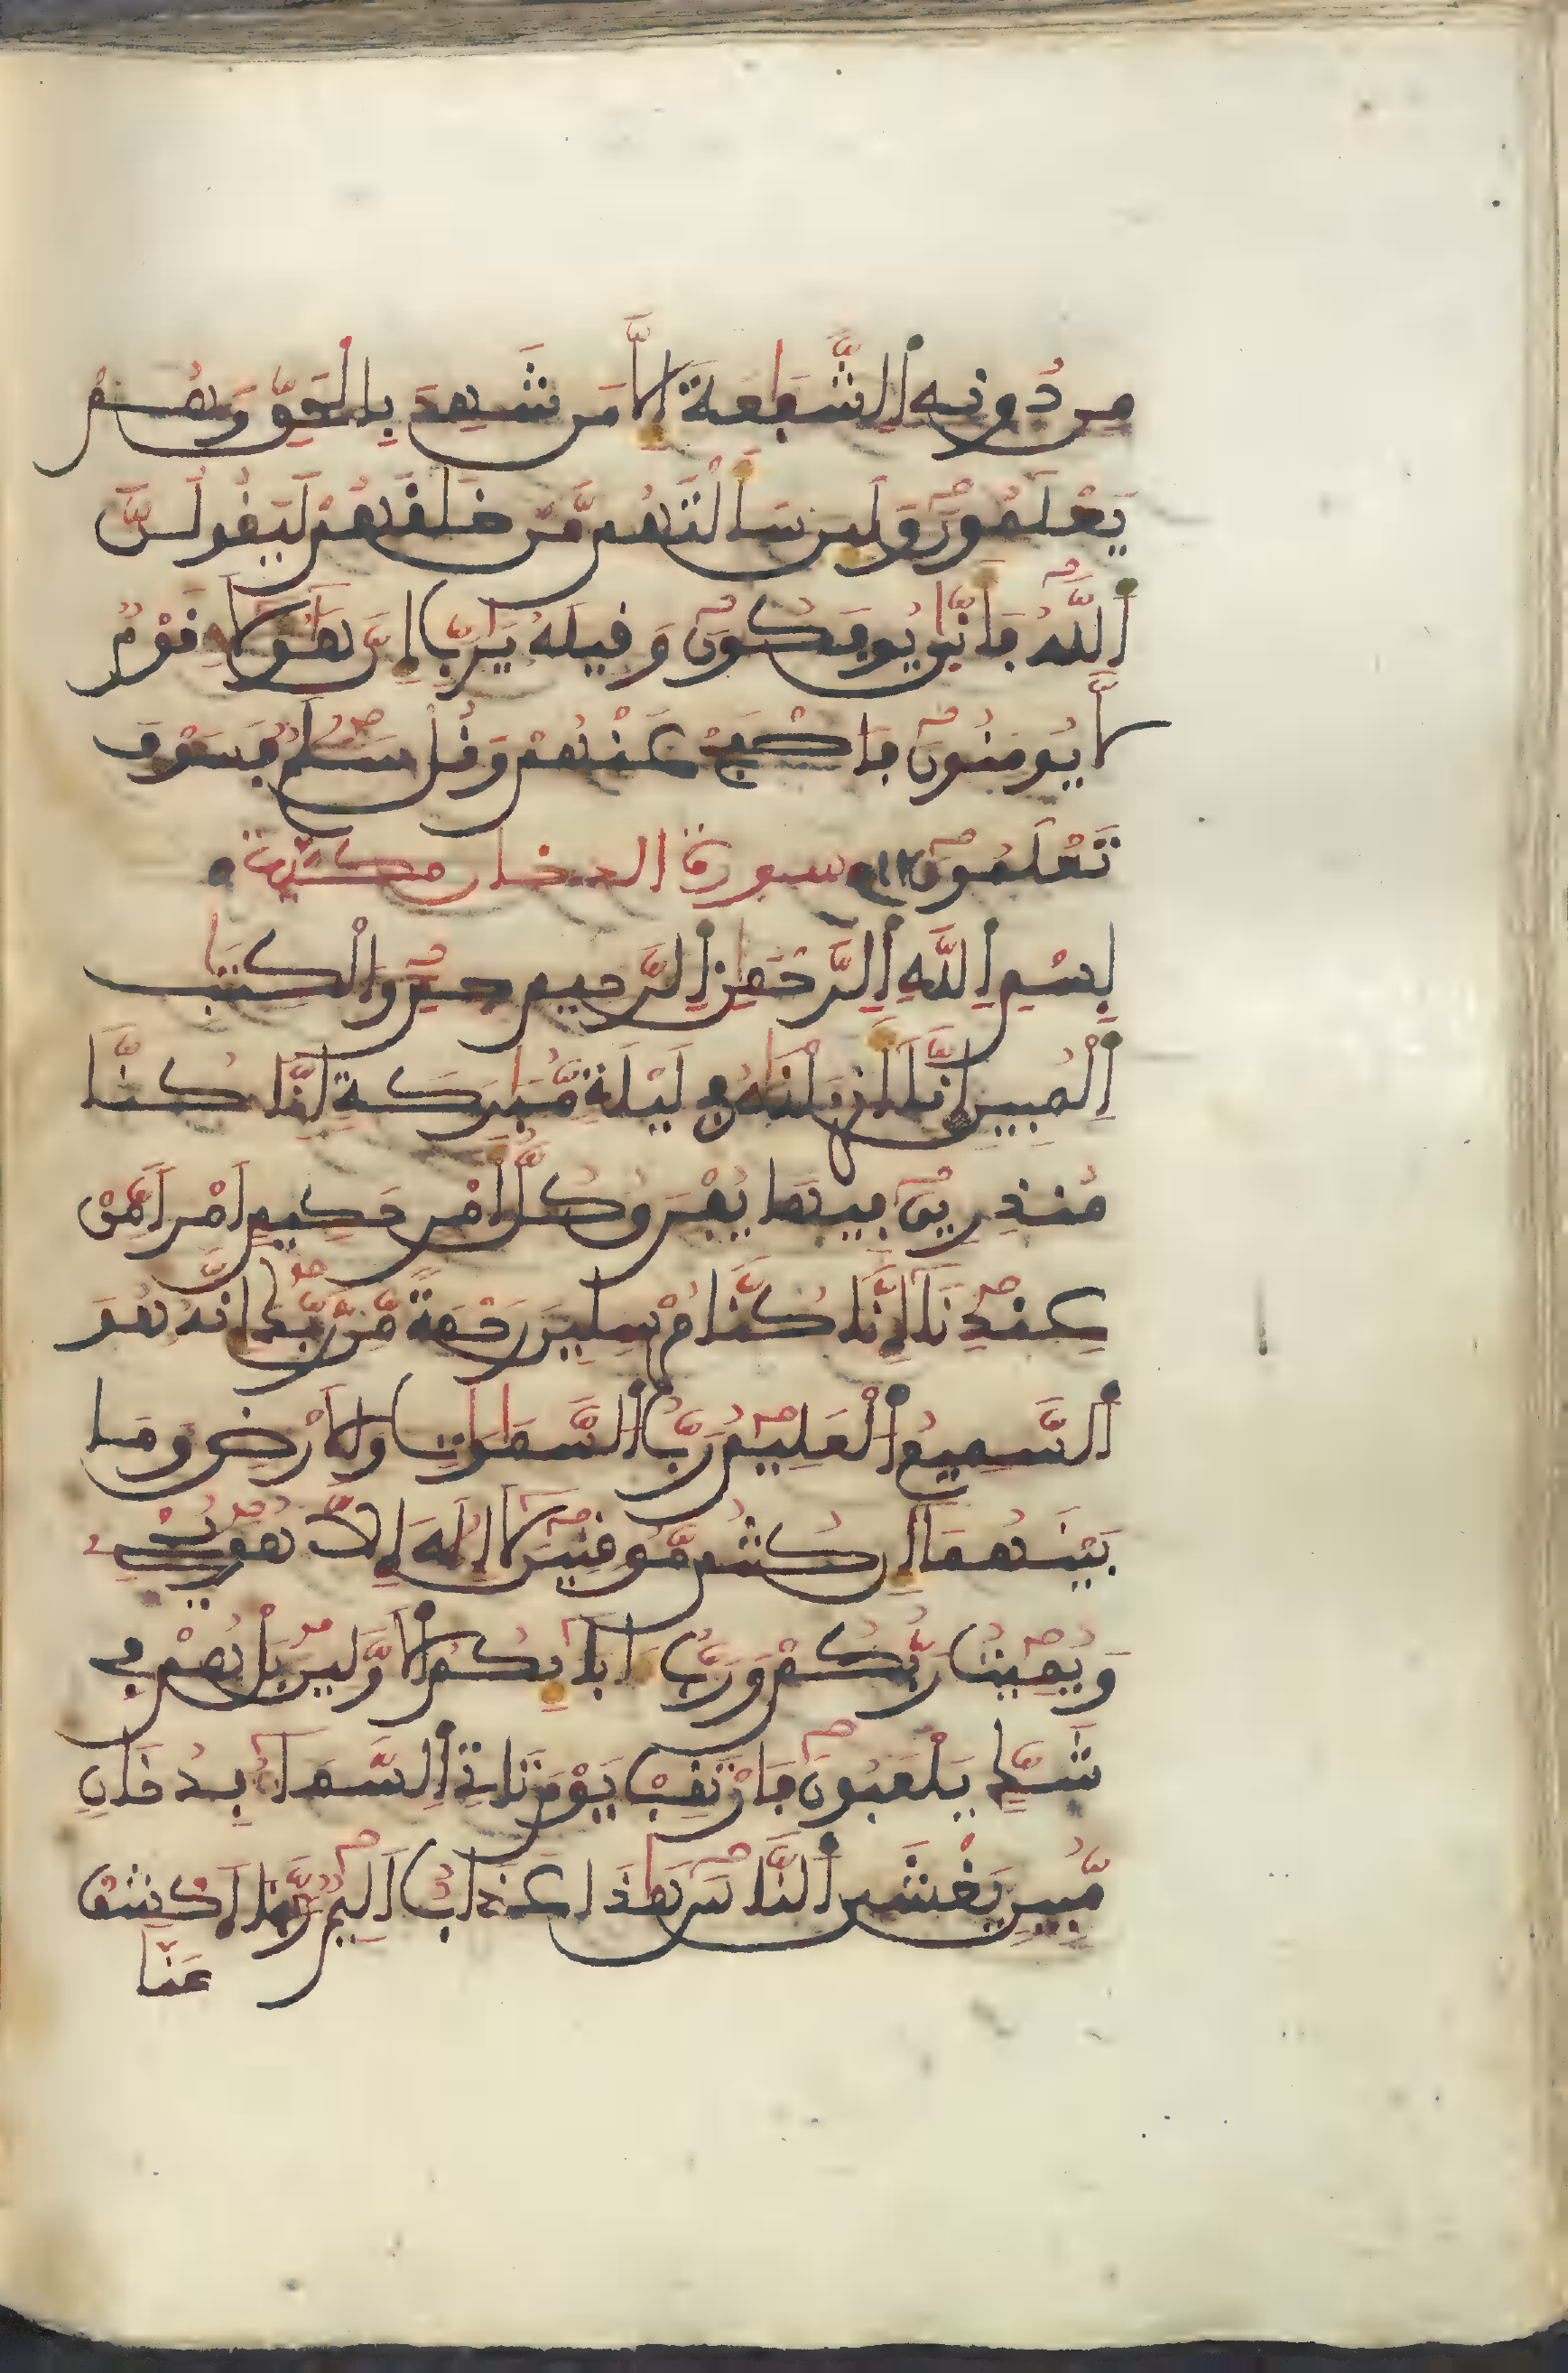 مِن دُونِهِ اِ۬لشَّفَٰعَةَ إِلَّا مَن شَهِدَ بِالْحَقِّ وَهُمْ
يَعْلَمُونَ وَلَئِن سَأَلْتَهُم مَّنْ خَلَقَهُمْ لَيَقُولُنَّ
اَ۬للَّهُ فَأَنّ۪ىٰ يُوفَكُونَ وَقِيلَهُ يَٰرَبِّ إِنَّ هَٰٓؤُلَآءِ قَوْمٌ
لَّا يُومِنُونَ فَاصْفَحْ عَنْهُمْ وَقُلْ سَلَٰمٌ فَسَوْفَ
تَعْلَمُونَ سورة الدخان مكية
بِسْمِ اِ۬للَّهِ اِ۬لرَّحْمَٰنِ اِ۬لرَّحِيمِ ح۪مِٓ وَالْكِتَٰبِ
اِ۬لْمُبِينِ إِنَّآ أَنزَلْنَٰهُ فِي لَيْلَةٍ مُّبَٰرَكَةٍ اِنَّا كُنَّا
مُنذِرِينَ فِيهَا يُفْرَقُ كُلُّ أَمْرٍ حَكِيمٍ اَمْراً مِّنْ
عِندِنَآ إِنَّا كُنَّا مُرْسِلِينَ رَحْمَةً مِّن رَّبِّكَ إِنَّهُ هُوَ
اَ۬لسَّمِيعُ اُ۬لْعَلِيمُ رَبُّ اُ۬لسَّمَٰوَٰتِ وَالَارْضِ وَمَا
بَيْنَهُمَآ إِن كُنتُم مُّوقِنِينَ لَآ إِلَٰهَ إِلَّا هُوَ يُحْيِ
وَيُمِيتُ رَبُّكُمْ وَرَبُّ ءَابَآئِكُمُ اُ۬لَاوَّلِينَ بَلْ هُمْ فِي
شَكٍّ يَلْعَبُونَ فَارْتَقِبْ يَوْمَ تَاتِي اِ۬لسَّمَآءُ بِدُخَانٍ
مُّبِينٍ يَغْشَى اَ۬لنَّاسَ هَٰذَا عَذَابٌ اَلِيمٌ رَّبَّنَا اَكْشِفْ
عَنَّا